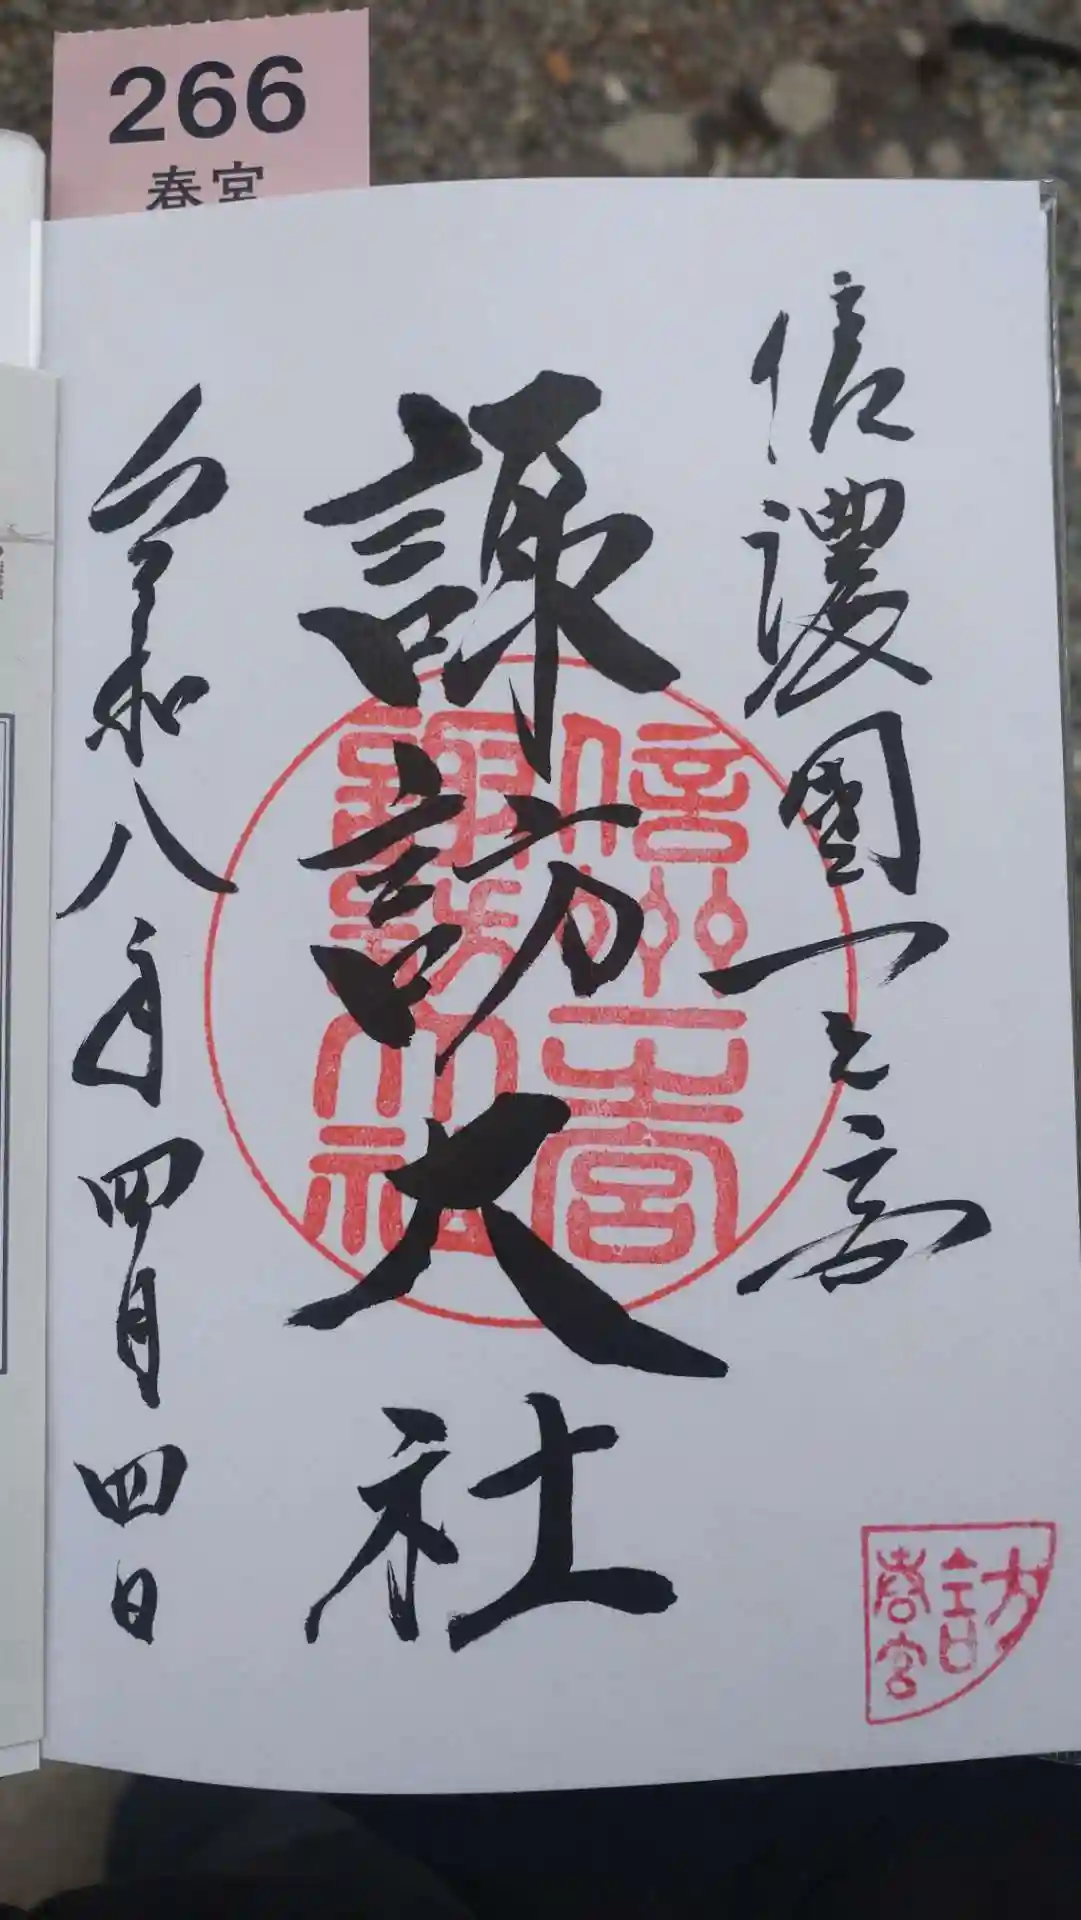 266
春宮
信濃國一之宮
諏訪大社
令和八年四月四日
信州一宮
諏訪大社
訪
春宮